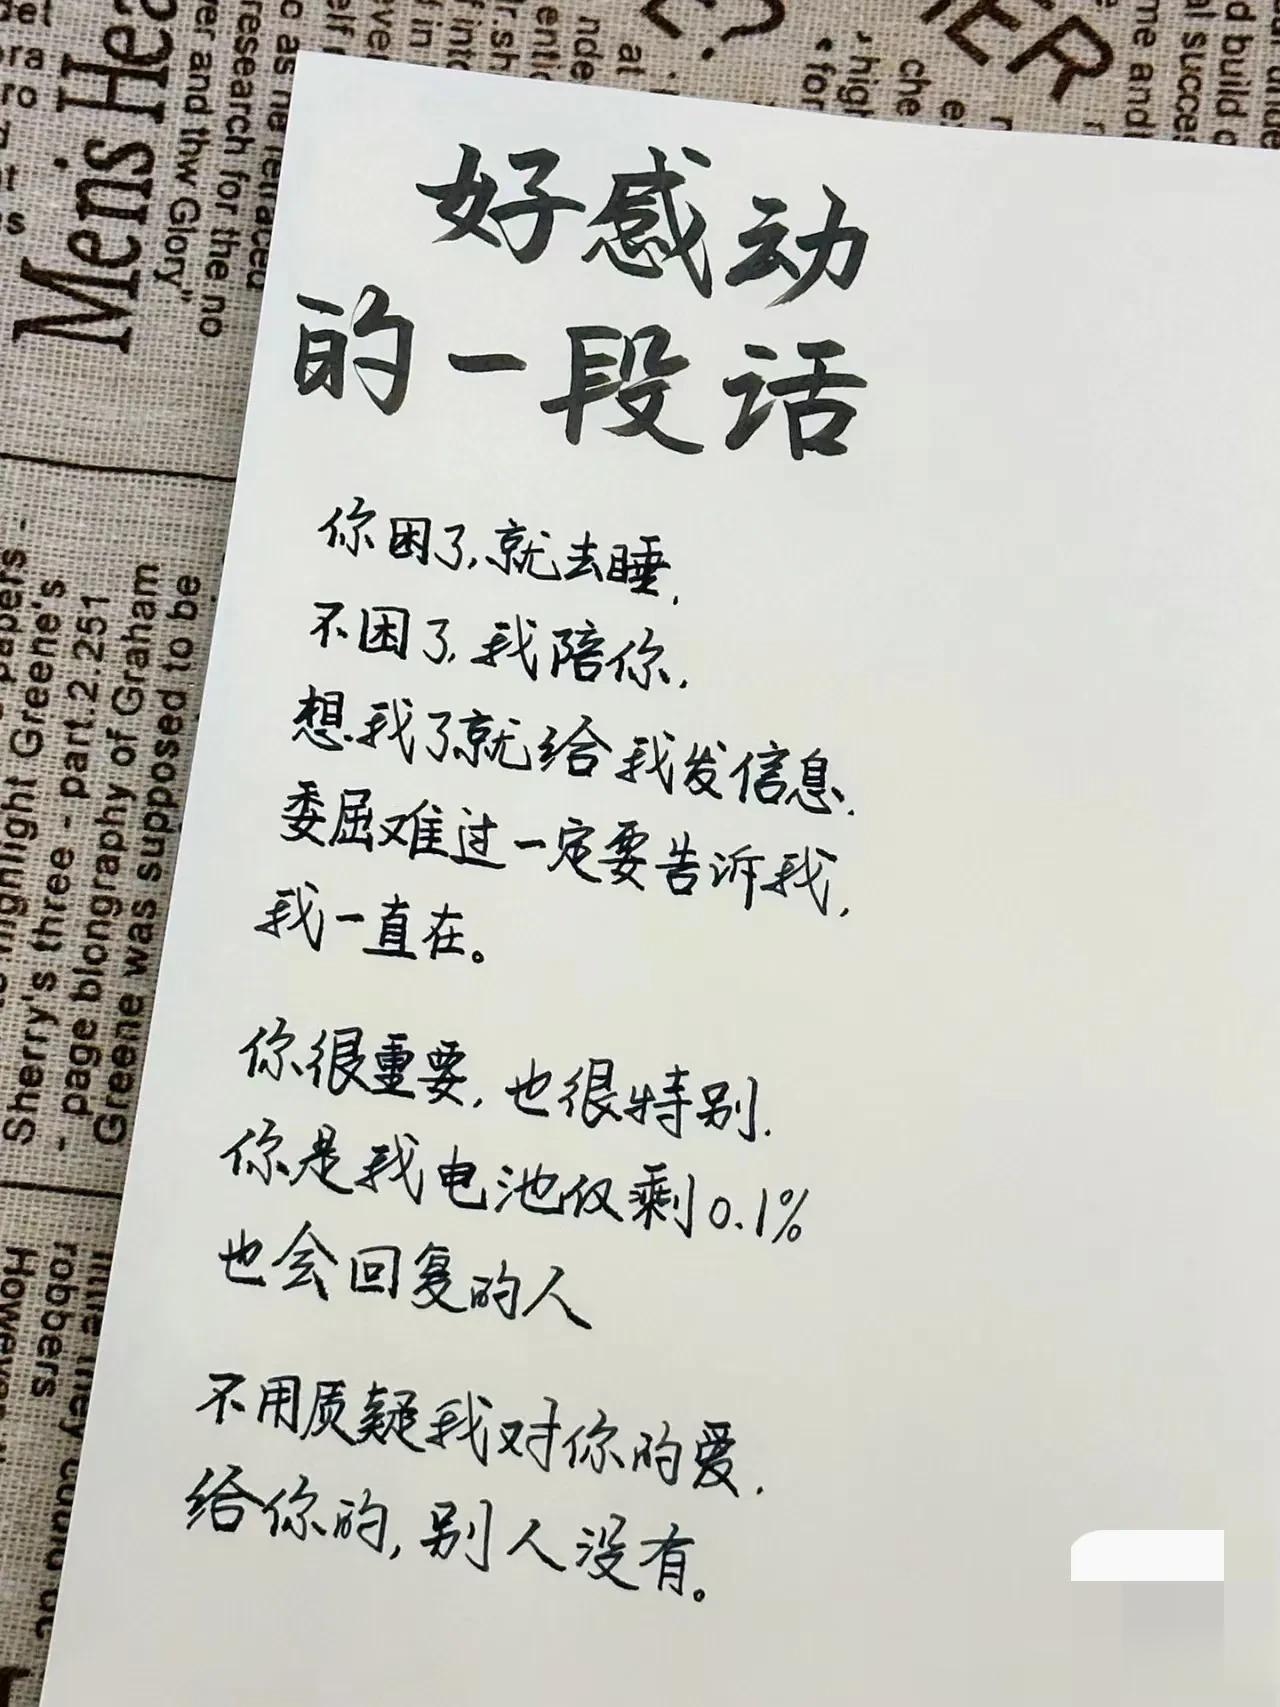 好感动
的一段话
你困了,就去睡,
不困了,我陪你,
想我了就给我发信息,
委屈难过一定要告诉我,
我一直在。
你很重要,也很特别,
你是我电池仅剩0.1%
也会回复的人
不用质疑我对你的爱,
给你的,别人没有。
Men's Hea
research for the no
ver and thw Glory"
papers -
highlight Greene's
Sherry's three - part.2.251
- page biongraphy of Graham
Greene was supposed to be
robbers